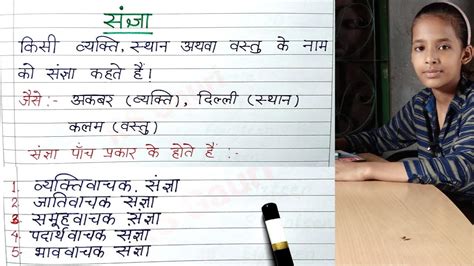 संज्ञा
किसी व्यक्ति, स्थान अथवा वस्तु के नाम
को संज्ञा कहते हैं!
जैसे :- अकबर (व्यक्ति), दिल्ली (स्थान)
कलम (वस्तु)
संज्ञा पाँच प्रकार के होते हैं :-
1. व्यक्तिवाचक संज्ञा
2. जातिवाचक संज्ञा
3. समूहवाचक संज्ञा
4. पदार्थवाचक संज्ञा
5- भाववाचक संज्ञा